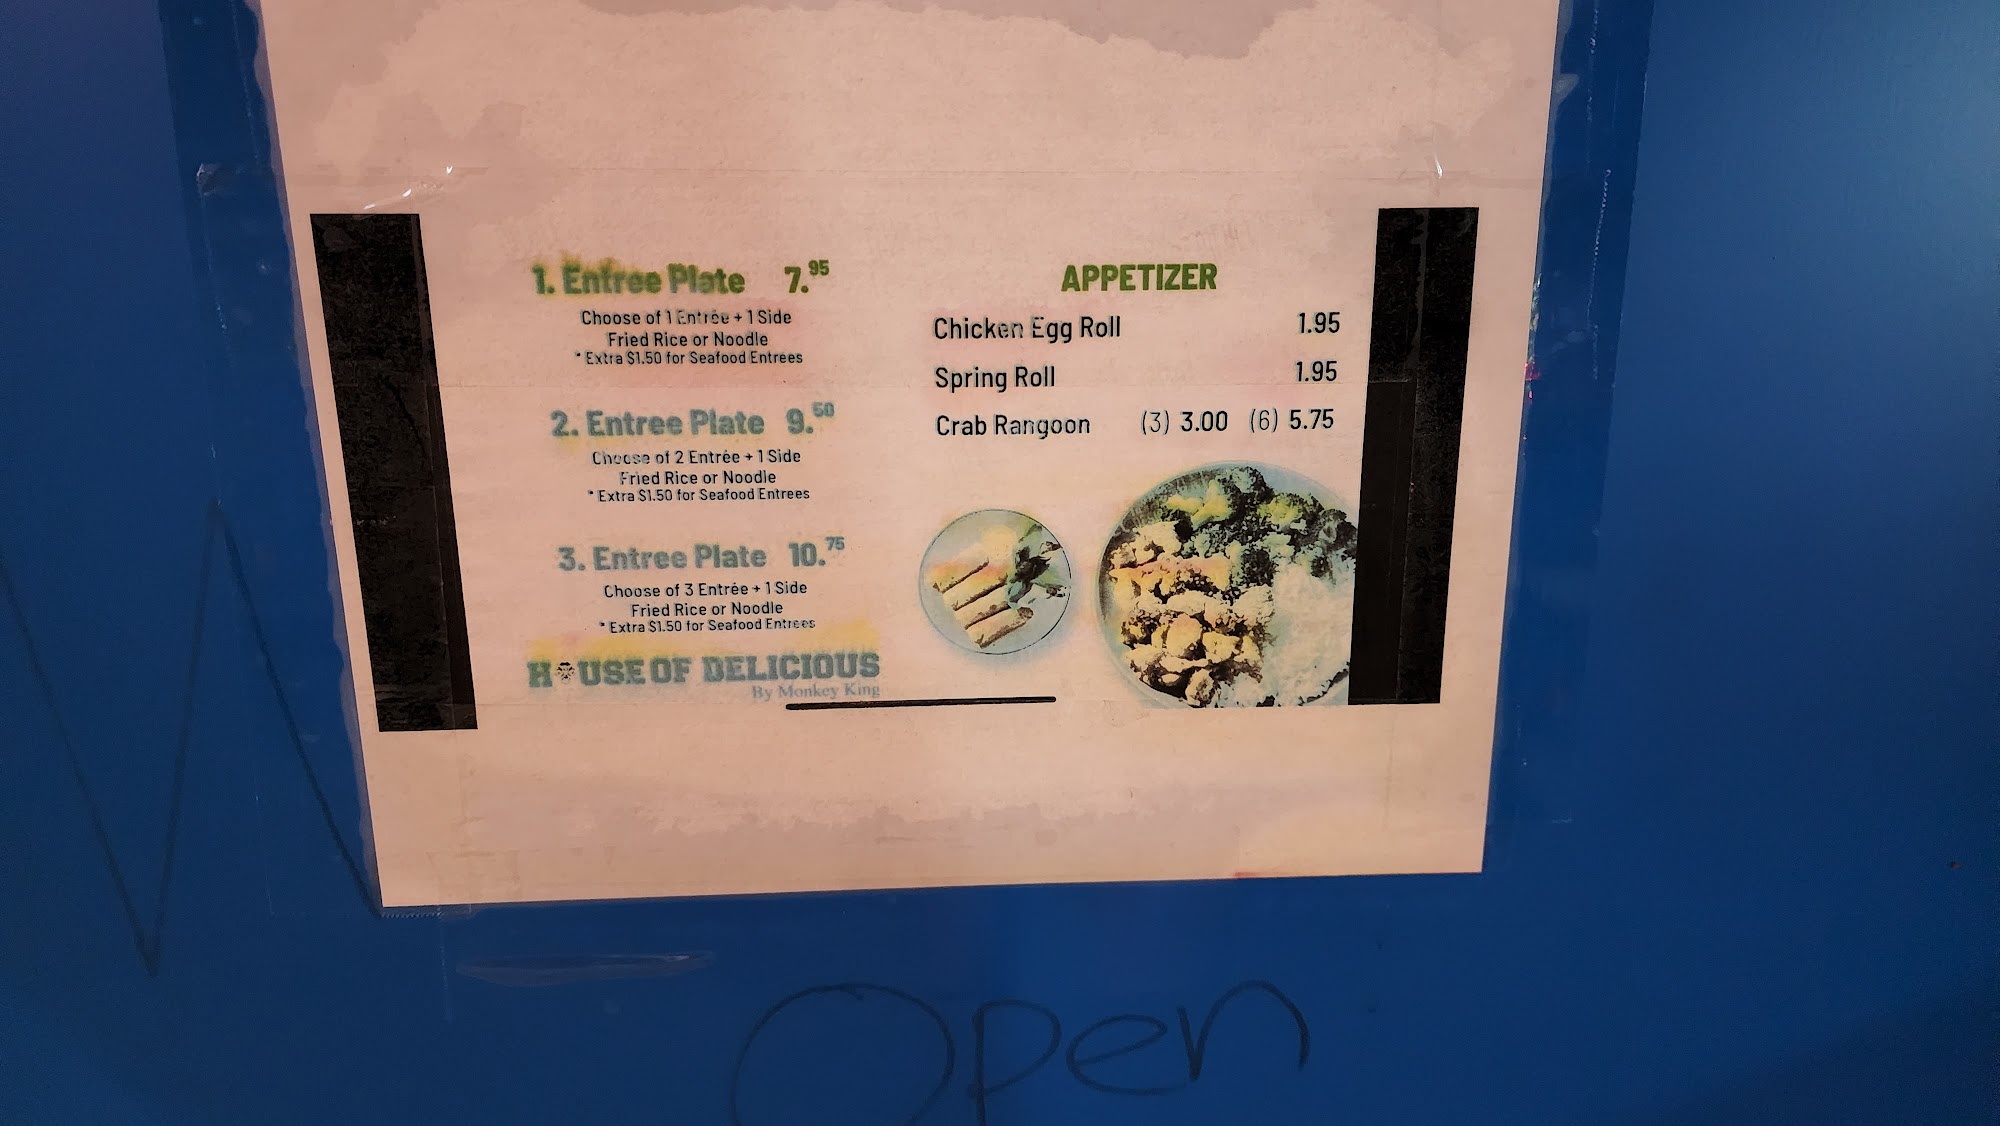 1. Entree Plate 7.95
Choose of 1 Entrée + 1 Side
Fried Rice or Noodle
* Extra $1.50 for Seafood Entrees
2. Entree Plate 9.50
Choose of 2 Entrée + 1 Side
Fried Rice or Noodle
* Extra $1.50 for Seafood Entrees
3. Entree Plate 10.75
Choose of 3 Entrée + 1 Side
Fried Rice or Noodle
* Extra $1.50 for Seafood Entrees
HOUSE OF DELICIOUS
By Monkey King
APPETIZER
Chicken Egg Roll 1.95
Spring Roll 1.95
Crab Rangoon (3) 3.00 (6) 5.75
W
Open